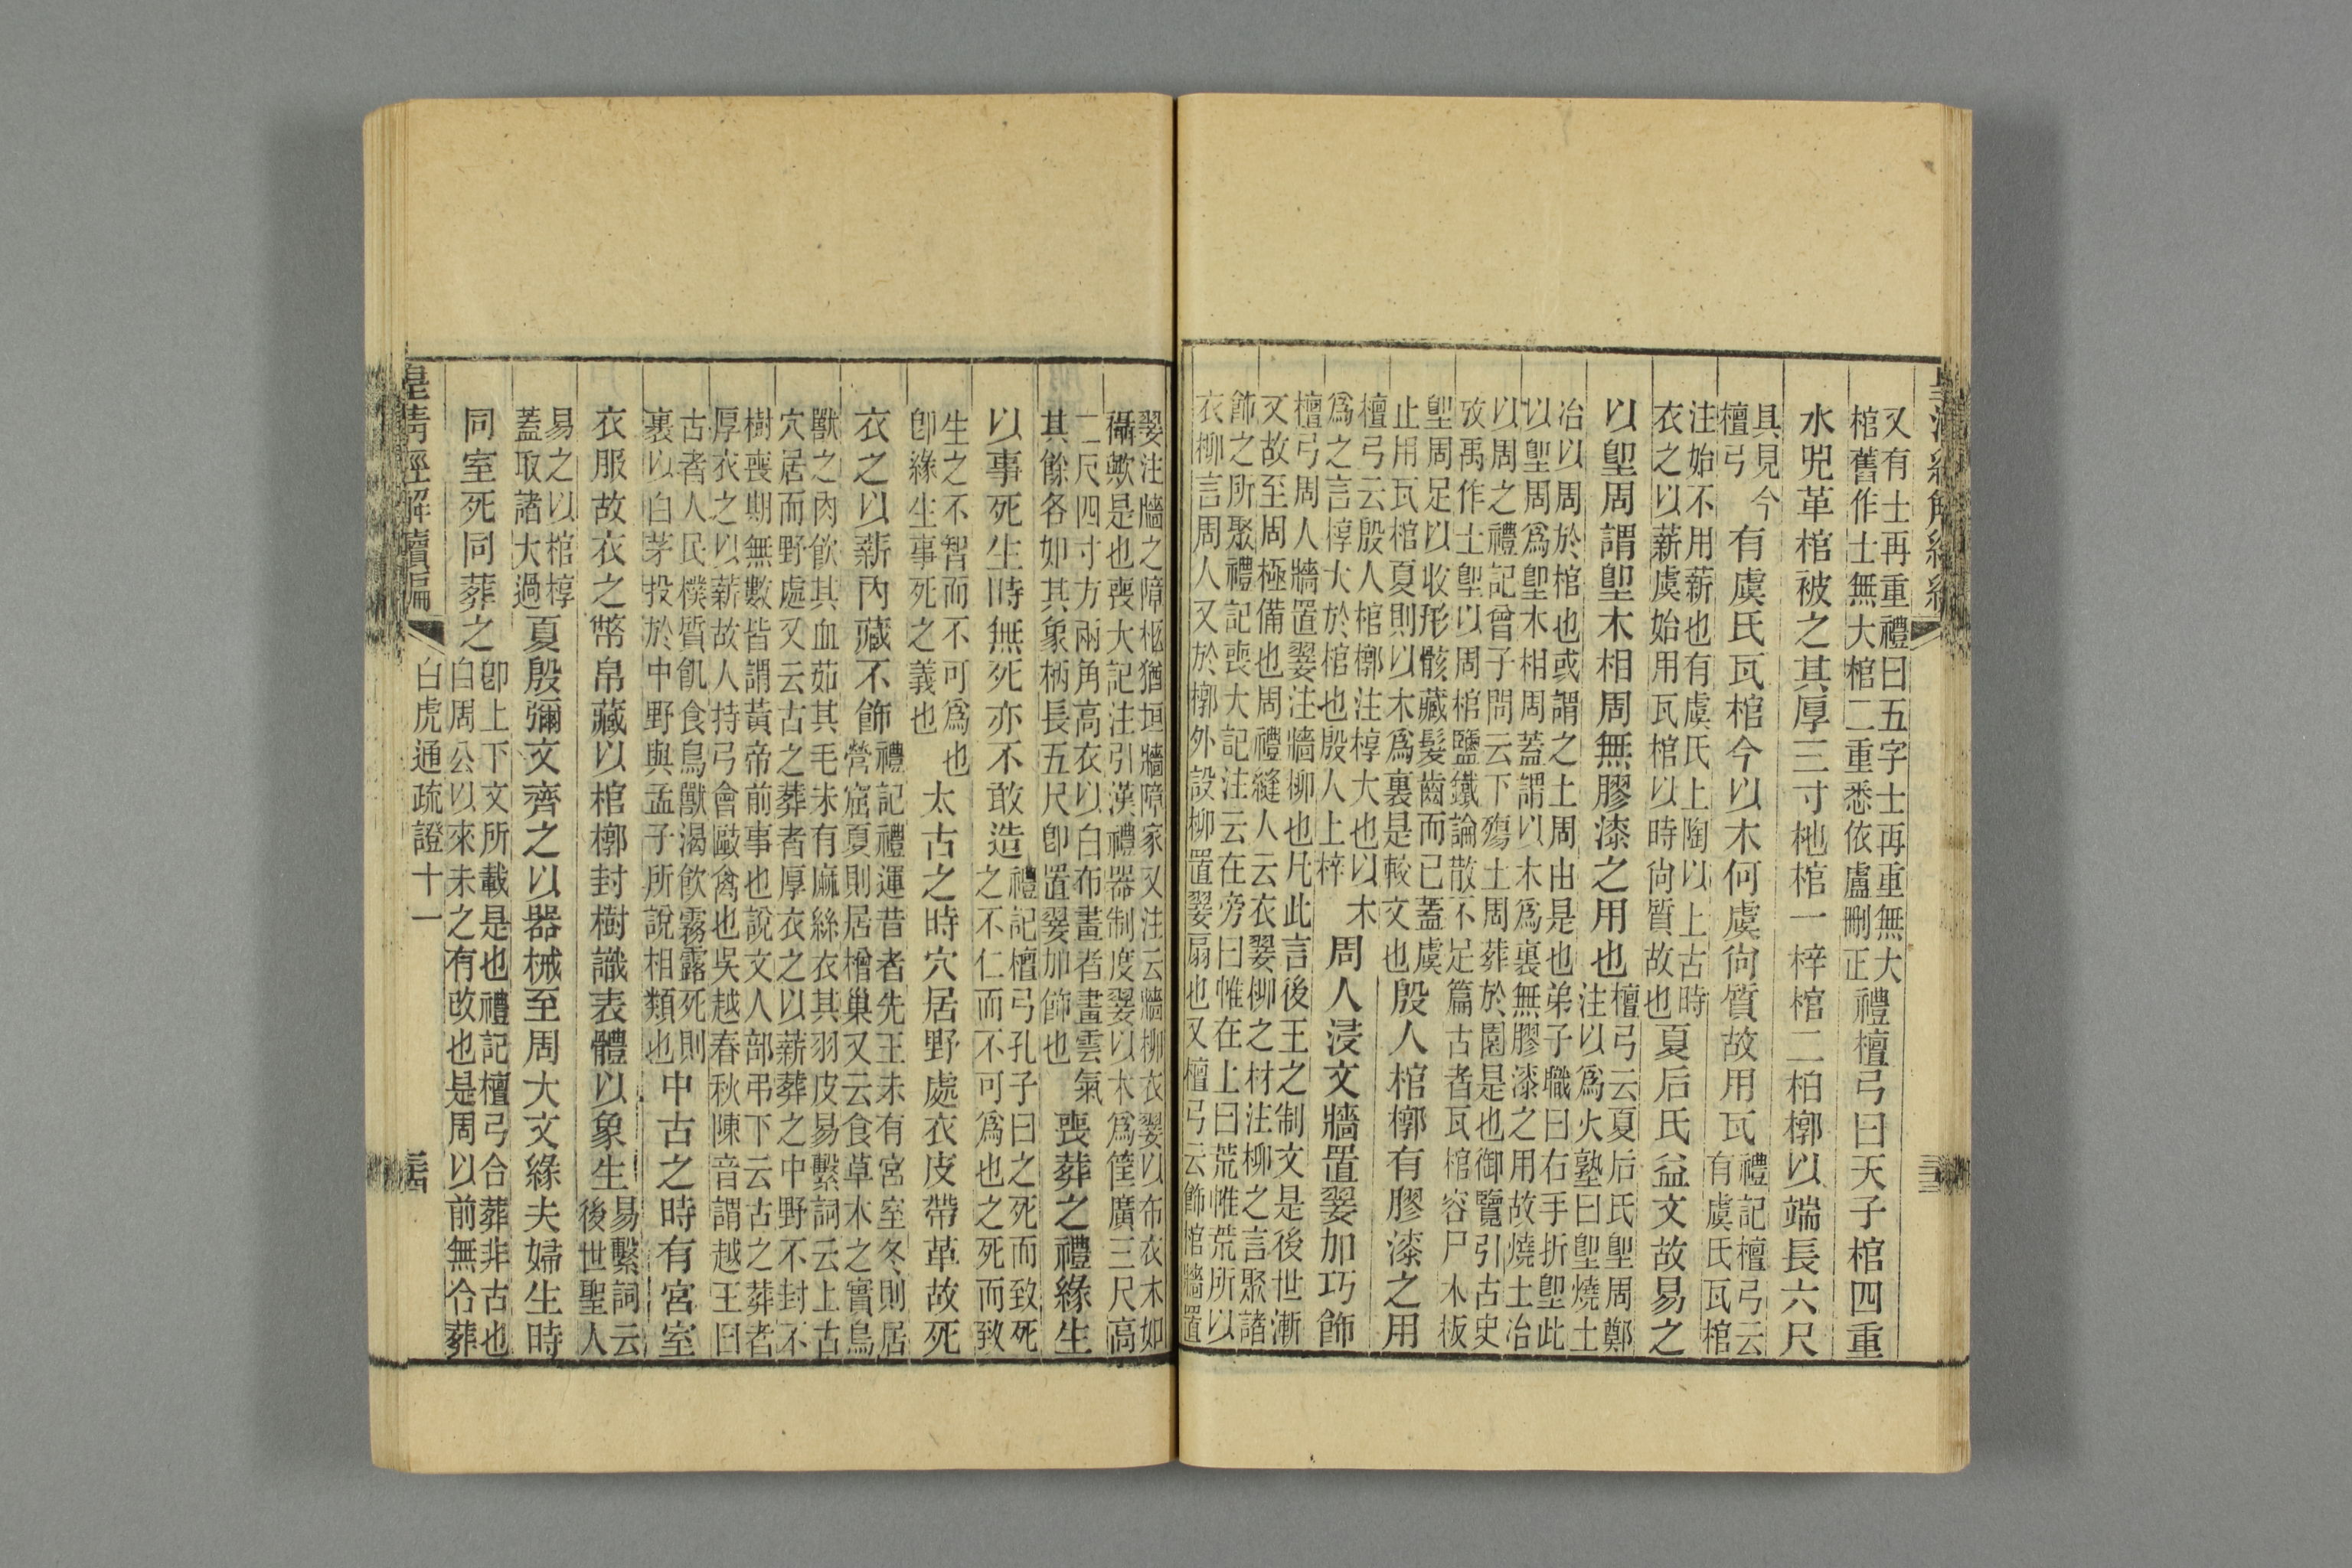 又有士再重禮曰五字士再重無大
棺舊作士無大棺二重悉依盧刪正
禮檀弓曰天子棺四重
水兕革棺被之其厚三寸杝棺一梓棺二柏槨以端長六尺
具見今
檀弓
有虞氏瓦棺今以木何虞尙質故用瓦
禮記檀弓云
有虞氏瓦棺
注始不用薪也有虞氏上陶以上古時
衣之以薪虞始用瓦棺以時尙質故也
夏后氏益文故易之
以堲周謂堲木相周無膠漆之用也
檀弓云夏后氏堲周鄭
注以爲火塾曰堲燒土
冶以周於棺也或謂之土周由是也弟子職曰右手折堲此
以堲周爲堲木相周蓋謂以木爲裏無膠漆之用故燒土冶
以周之禮記曾子問云下殤土周葬於園是也御覽引古史
攷禹作土堲以周棺鹽鐵論散不足篇古者瓦棺容尸木板
堲周足以收形骸藏髮齒而已蓋虞
止用瓦棺夏則以木爲裏是較文也
殷人棺槨有膠漆之用
檀弓云殷人棺槨注椁大也以木
爲之言椁大於棺也殷人上梓
周人浸文牆置翣加巧飾
檀弓周人牆置翣注牆柳也凡此言後王之制文是後世漸
文故至周極備也周禮縫人云衣翣柳之材注柳之言聚諸
飾之所聚禮記喪大記注云在旁曰帷在上曰荒帷荒所以
衣柳言周人又於槨外設柳置翣扇也又檀弓云飾棺牆置
翣注牆之障柩猶垣牆障家又注云牆柳衣翣以布衣木如
襵歟是也喪大記注引漢禮器制度翣以木爲筐廣三尺高
二尺四寸方兩角高衣以白布畫者畫雲氣
其餘各如其象柄長五尺卽置翣加飾也
喪葬之禮緣生
以事死生時無死亦不敢造
禮記檀弓孔子曰之死而致死
之不仁而不可爲也之死而致
生之不智而不可爲也
卽緣生事死之義也
太古之時穴居野處衣皮帶革故死
衣之以薪內藏不飾
禮記禮運昔者先王未有宮室冬則居
營窟夏則居橧巢又云食草木之實鳥
獸之肉飮其血茹其毛未有麻絲衣其羽皮易繫詞云上古
穴居而野處又云古之葬者厚衣之以薪葬之中野不封不
樹喪期無數皆謂黃帝前事也說文人部弔下云古之葬者
厚衣之以薪故人持弓會敺禽也吳越春秋陳音謂越王曰
古者人民樸質飢食鳥獸渴飮霧露死則
裹以白茅投於中野與孟子所說相類也
中古之時有宮室
衣服故衣之幣帛藏以棺槨封樹識表體以象生
易繫詞云
後世聖人
易之以棺椁
蓋取諸大過
夏殷彌文齊之以器械至周大文緣夫婦生時
同室死同葬之
卽上下文所載是也禮記檀弓合葬非古也
自周公以來未之有改也是周以前無合葬
皇清經解續編
白虎通疏證十一